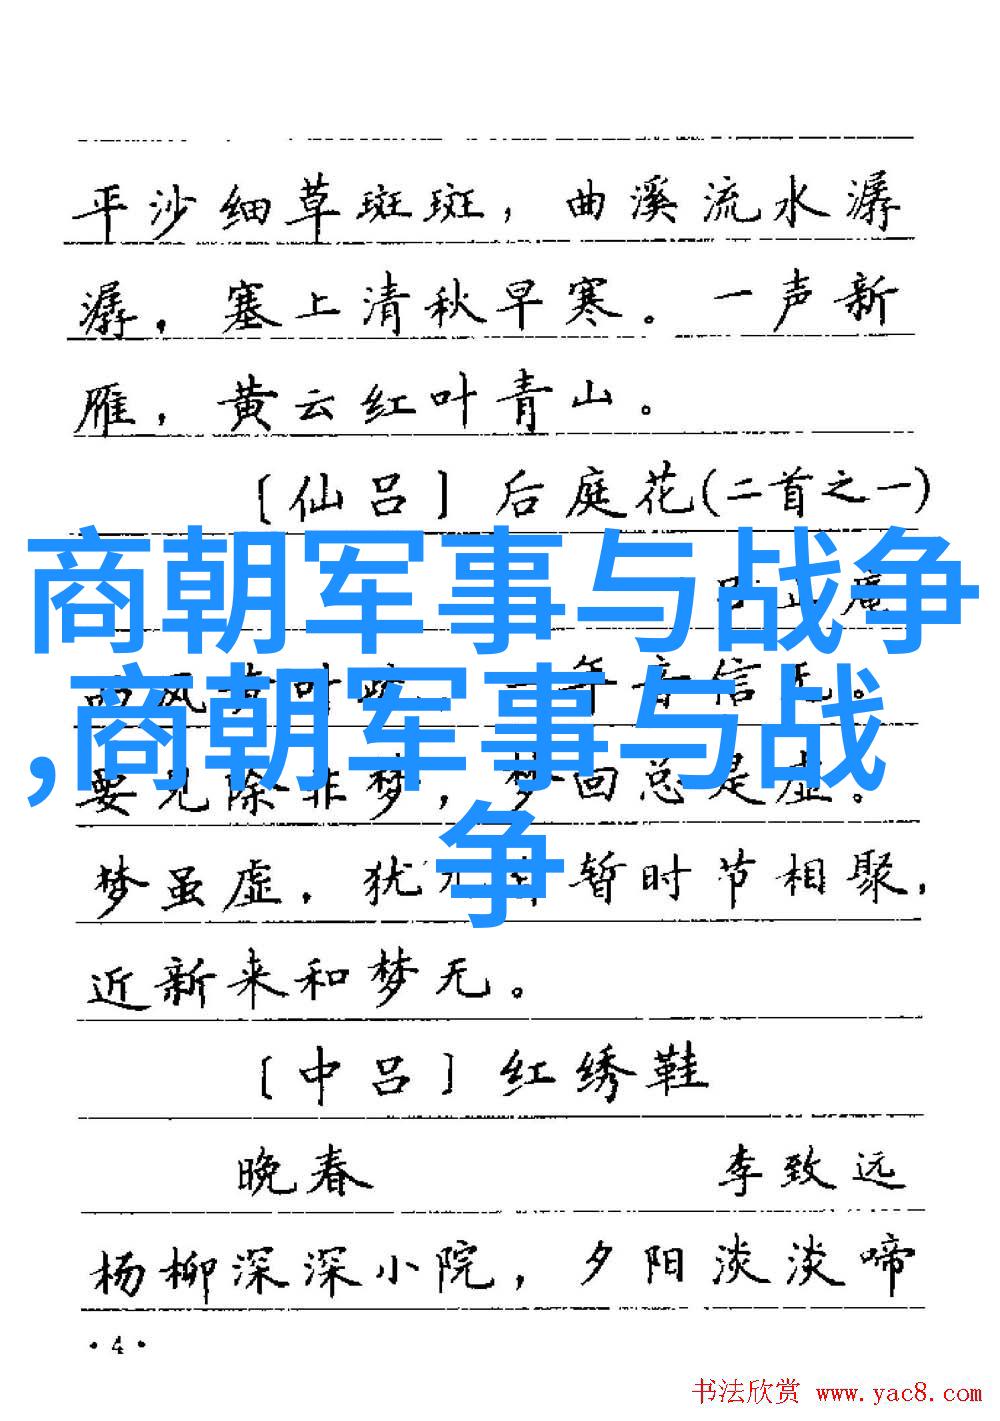 平沙细草斑斑，曲溪流水潺
潺，塞上清秋早寒。一声新
雁，黄云红叶青山。
〔仙吕〕后庭花(二首之一)
商朝军事与战争
,商朝军事与战
争
风 叶 年音信无。
要见除非梦，梦回总是虚。
梦虽虚，犹 暂时节相聚，
近新来和梦无。
〔中吕〕红绣鞋
晚春 李致远
杨柳深深小院，夕阳淡淡啼
·4·
书法欣赏 www.yac8.com